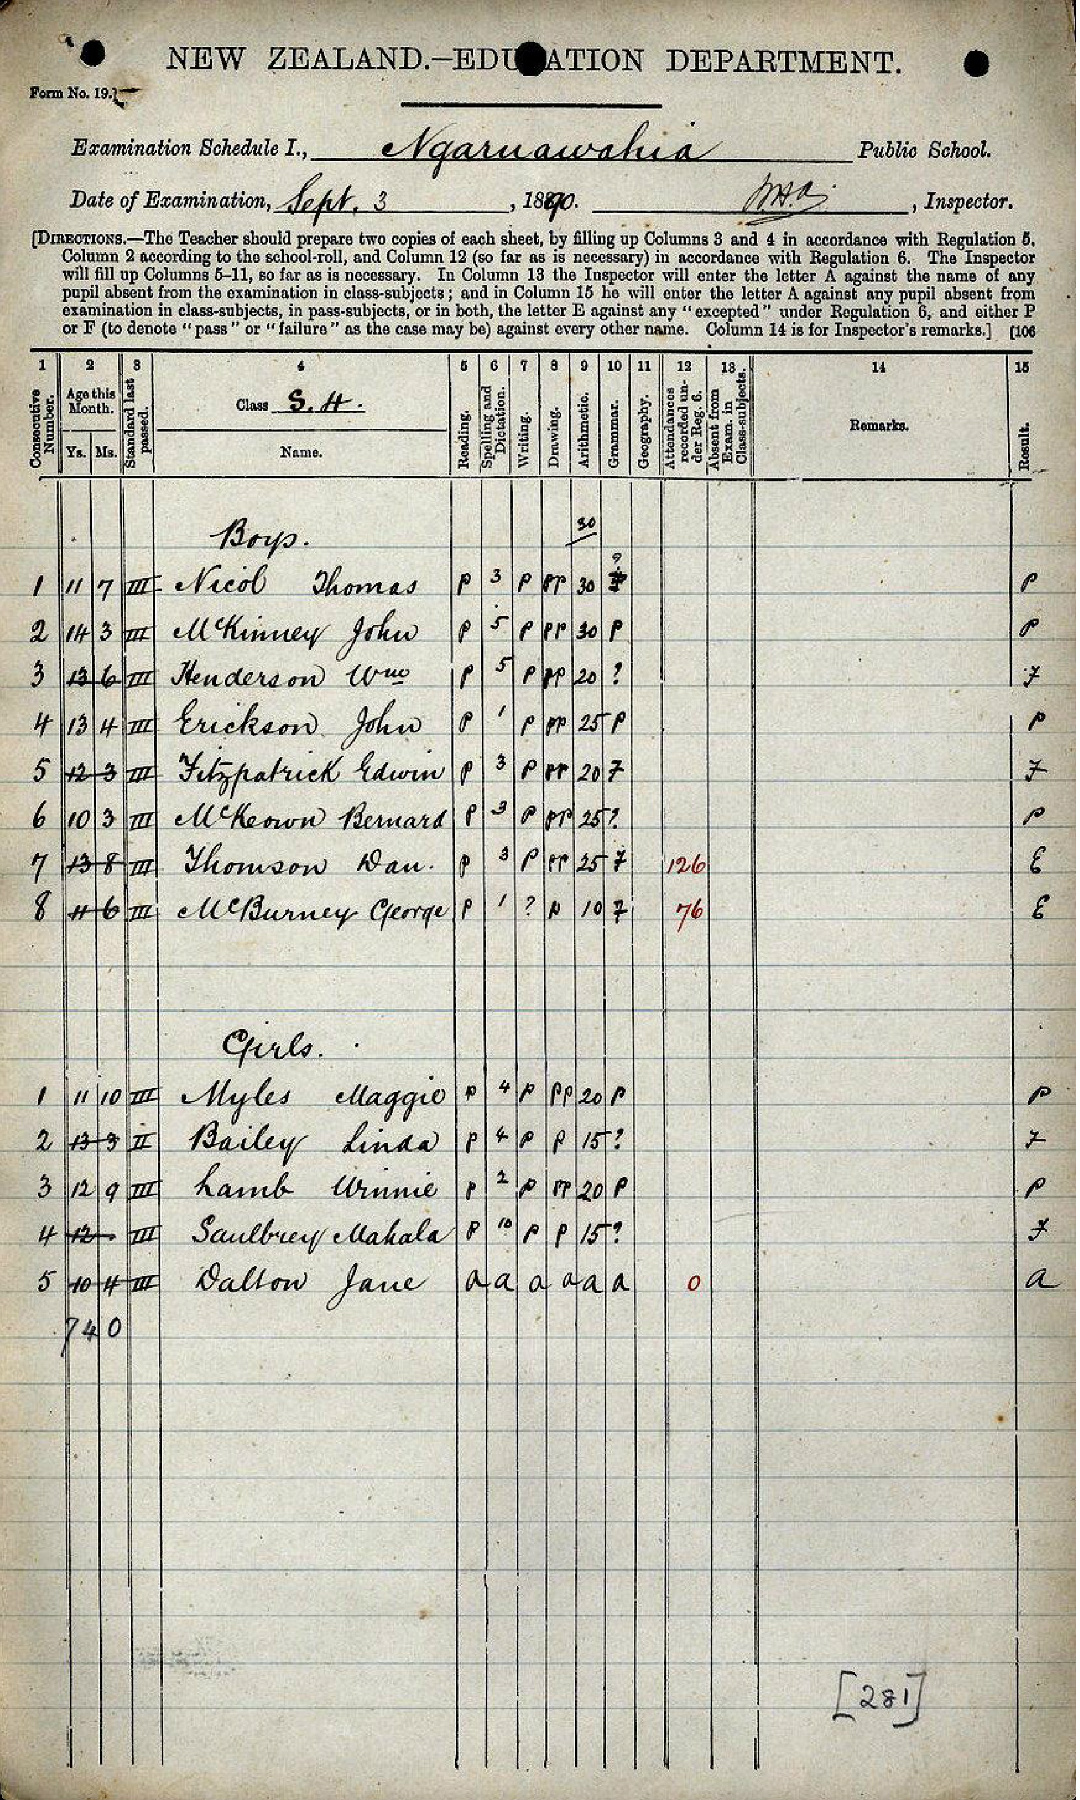 NEW ZEALAND.—EDUCATION DEPARTMENT.
Form No. 19.]
Examination Schedule I., Ngaruawahia Public School.
Date of Examination, Sept. 3, 1890. , Inspector.
[DIRECTIONS.—The Teacher should prepare two copies of each sheet, by filling up Columns 3 and 4 in accordance with Regulation 5,
Column 2 according to the school-roll, and Column 12 (so far as is necessary) in accordance with Regulation 6. The Inspector
will fill up Columns 5–11, so far as is necessary. In Column 13 the Inspector will enter the letter A against the name of any
pupil absent from the examination in class-subjects; and in Column 15 he will enter the letter A against any pupil absent from
examination in class-subjects, in pass-subjects, or in both, the letter E against any "excepted" under Regulation 6, and either P
or F (to denote "pass" or "failure" as the case may be) against every other name. Column 14 is for Inspector's remarks.] [106
1 2 3 4 5 6 7 8 9 10 11 12 13 14 15
Consecutive Number. Age this Month. Ys. Ms. Standard last passed. Class S. 4. Name. Reading. Spelling and Dictation. Writing. Drawing. Arithmetic. Grammar. Geography. Attendances recorded under Reg. 6. Absent from Exam. in Class-subjects. Remarks. Result.
Boys. 30
1 11 7 III Nicol Thomas P 3 P PP 30 ? P
2 14 3 III McKinney John P 5 P PP 30 P P
3 13 6 III Henderson Wm P 5 P PP 20 ? F
4 13 4 III Erickson John P 1 P PP 25 P P
5 12 3 III Fitzpatrick Edwin P 3 P PP 20 F F
6 10 3 III McKeown Bernard P 3 P PP 25 ? P
7 13 8 III Thomson Dan. P 3 P PP 25 F 126 E
8 11 6 III McBurney George P 1 ? P 10 F 76 E
Girls.
1 11 10 III Myles Maggie P 4 P PP 20 P P
2 13 3 II Bailey Linda P 4 P P 15 ? F
3 12 9 III Lamb Winnie P 2 P PP 20 P P
4 12 - III Saulbrey Mahala P 10 P P 15 ? F
5 10 4 III Dalton Jane a a a a a a 0 a
74 0
[281]